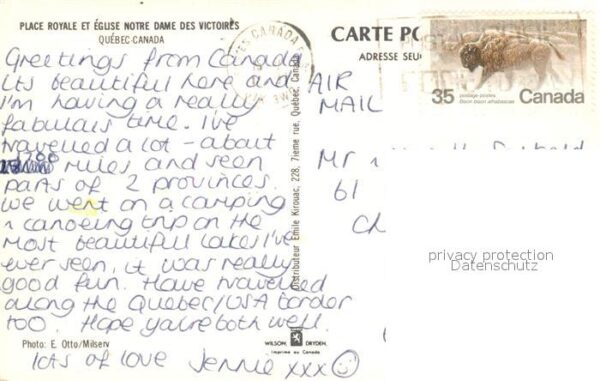 PLACE ROYALE ET ÉGLISE NOTRE DAME DES VICTOIRES
QUÉBEC-CANADA
Greetings from Canada
its beautiful here and
I'm having a really
fabulous time. I've
travelled a lot - about
miles and seen
parts of 2 provinces.
we went on a camping
n canoeing trip on the
most beautiful lakes I've
ever seen, it was really
good fun. Have travelled
along the Quebec/USA border
too. Hope you're both well.
Photo: E. Otto/Milserv
lots of love Jennie xxx
Distributeur Emile Kirouac, 228, 7ieme rue, Québec, Canada
WILSON DRYDEN
Imprime au Canada
CARTE PO
ADRESSE SEU
CANADA
35
postage-postes
Bison bison athabascae
Canada
AIR
MAIL
Mr
61
privacy protection
Datenschutz